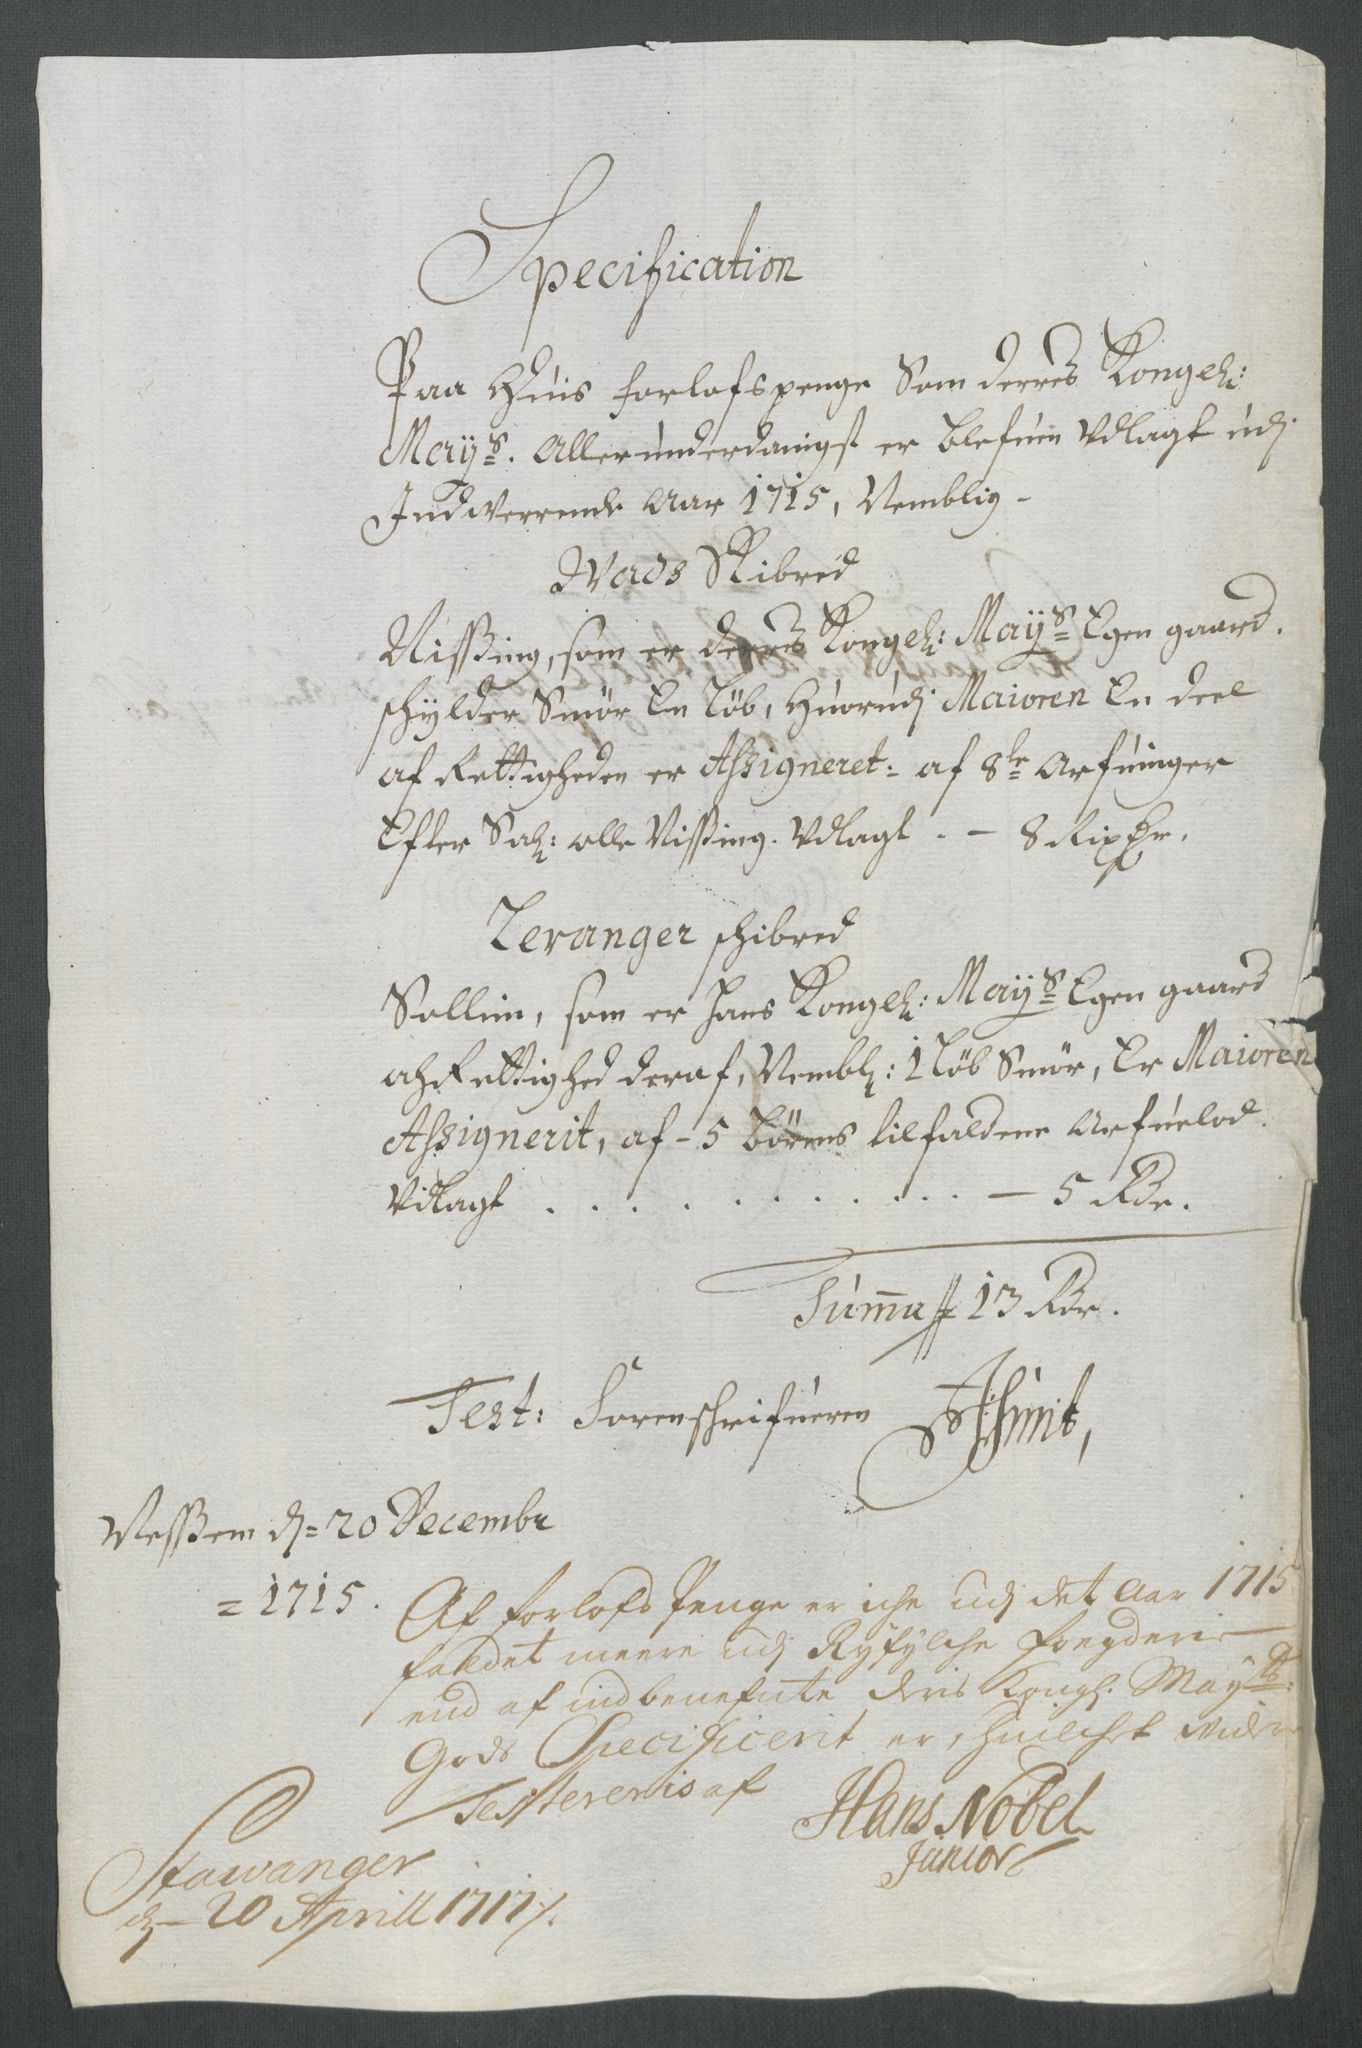 Specification
Paa Huis forlofspenge Som derres Kongel:
Mayts. Allerunderdanigst er blefuen Vdlagt udj
Indverrende Aar 1715, Nemblig -
Wads Skibred
Nissing, som er derres Kongel: Mayts Egen gaard.
schylder Smör En Löb, Huorudj Maioren En deel
af Rettigheden er Assigneret: af 8te Arfuinger
Efter Sal: olle Nissing. Vdlagt . - 8 Rixdr.
Leranger schibred
Sollim, som er Hans Kongel: Mayts Egen gaard
och Rettighed deraf, Nembl: 1 Löb Smör, Er Maioren
Assignerit, af - 5 Börens tilfaldene Arfuelod.
Vdlagt . . . . . . . . . . . - 5 Rdr.
Summa 13 Rdr.
Test: Sorenschrifueren Smit,
Nessem d: 20 Decembr
= 1715.
Af forlofs Penge er iche udj det Aar 1715
faldet meere udj Ryfylche fogderie
end af indbenefnte deris Kongl. Mayts:
Gods Specificerit er, huilchet vidre
Testereris af
Hans Nobel
Junior
Stawanger
d. 20 Aprill 1717.